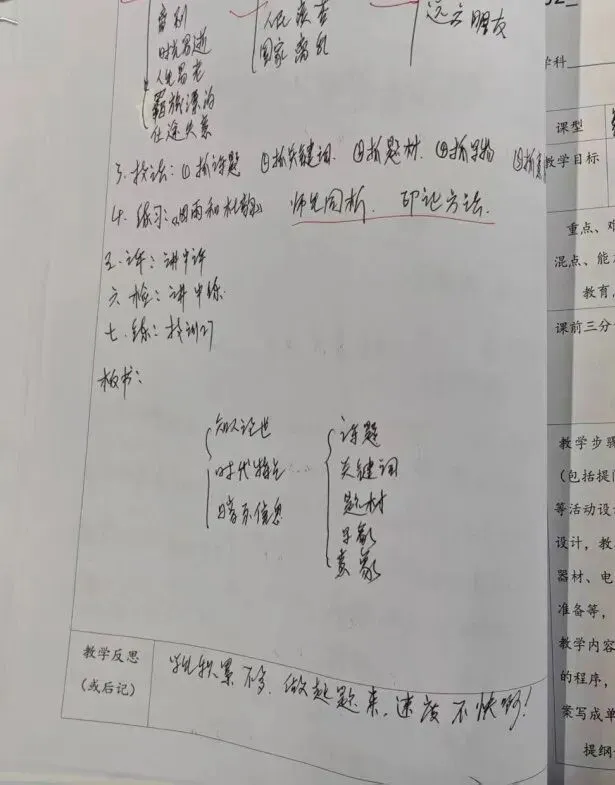 离别
时光易逝
人生易老
羁旅漂泊
仕途失意
人民疾苦
国家离乱
远方朋友
3. 技法：①抓诗题 ②抓关键词. ③抓题材. ④抓景物 ⑤抓意
4. 练习: 师生同析. 印证方法.
五. 评：讲中评
六 检：讲中练
七. 练：技训
板书：
知人论世
时代特色
暗示信息
诗题
关键词
题材
景象
意象
教学反思
（或后记）
学生积累不多. 做起题来, 速度不快啊!
学科
课型
教学目标
重点、难
混点、能
教育
课前三分
教学步骤
（包括提问
等活动设
设计，教
器材、电
准备等，
教学内容
的程序，
案写成单
提纲